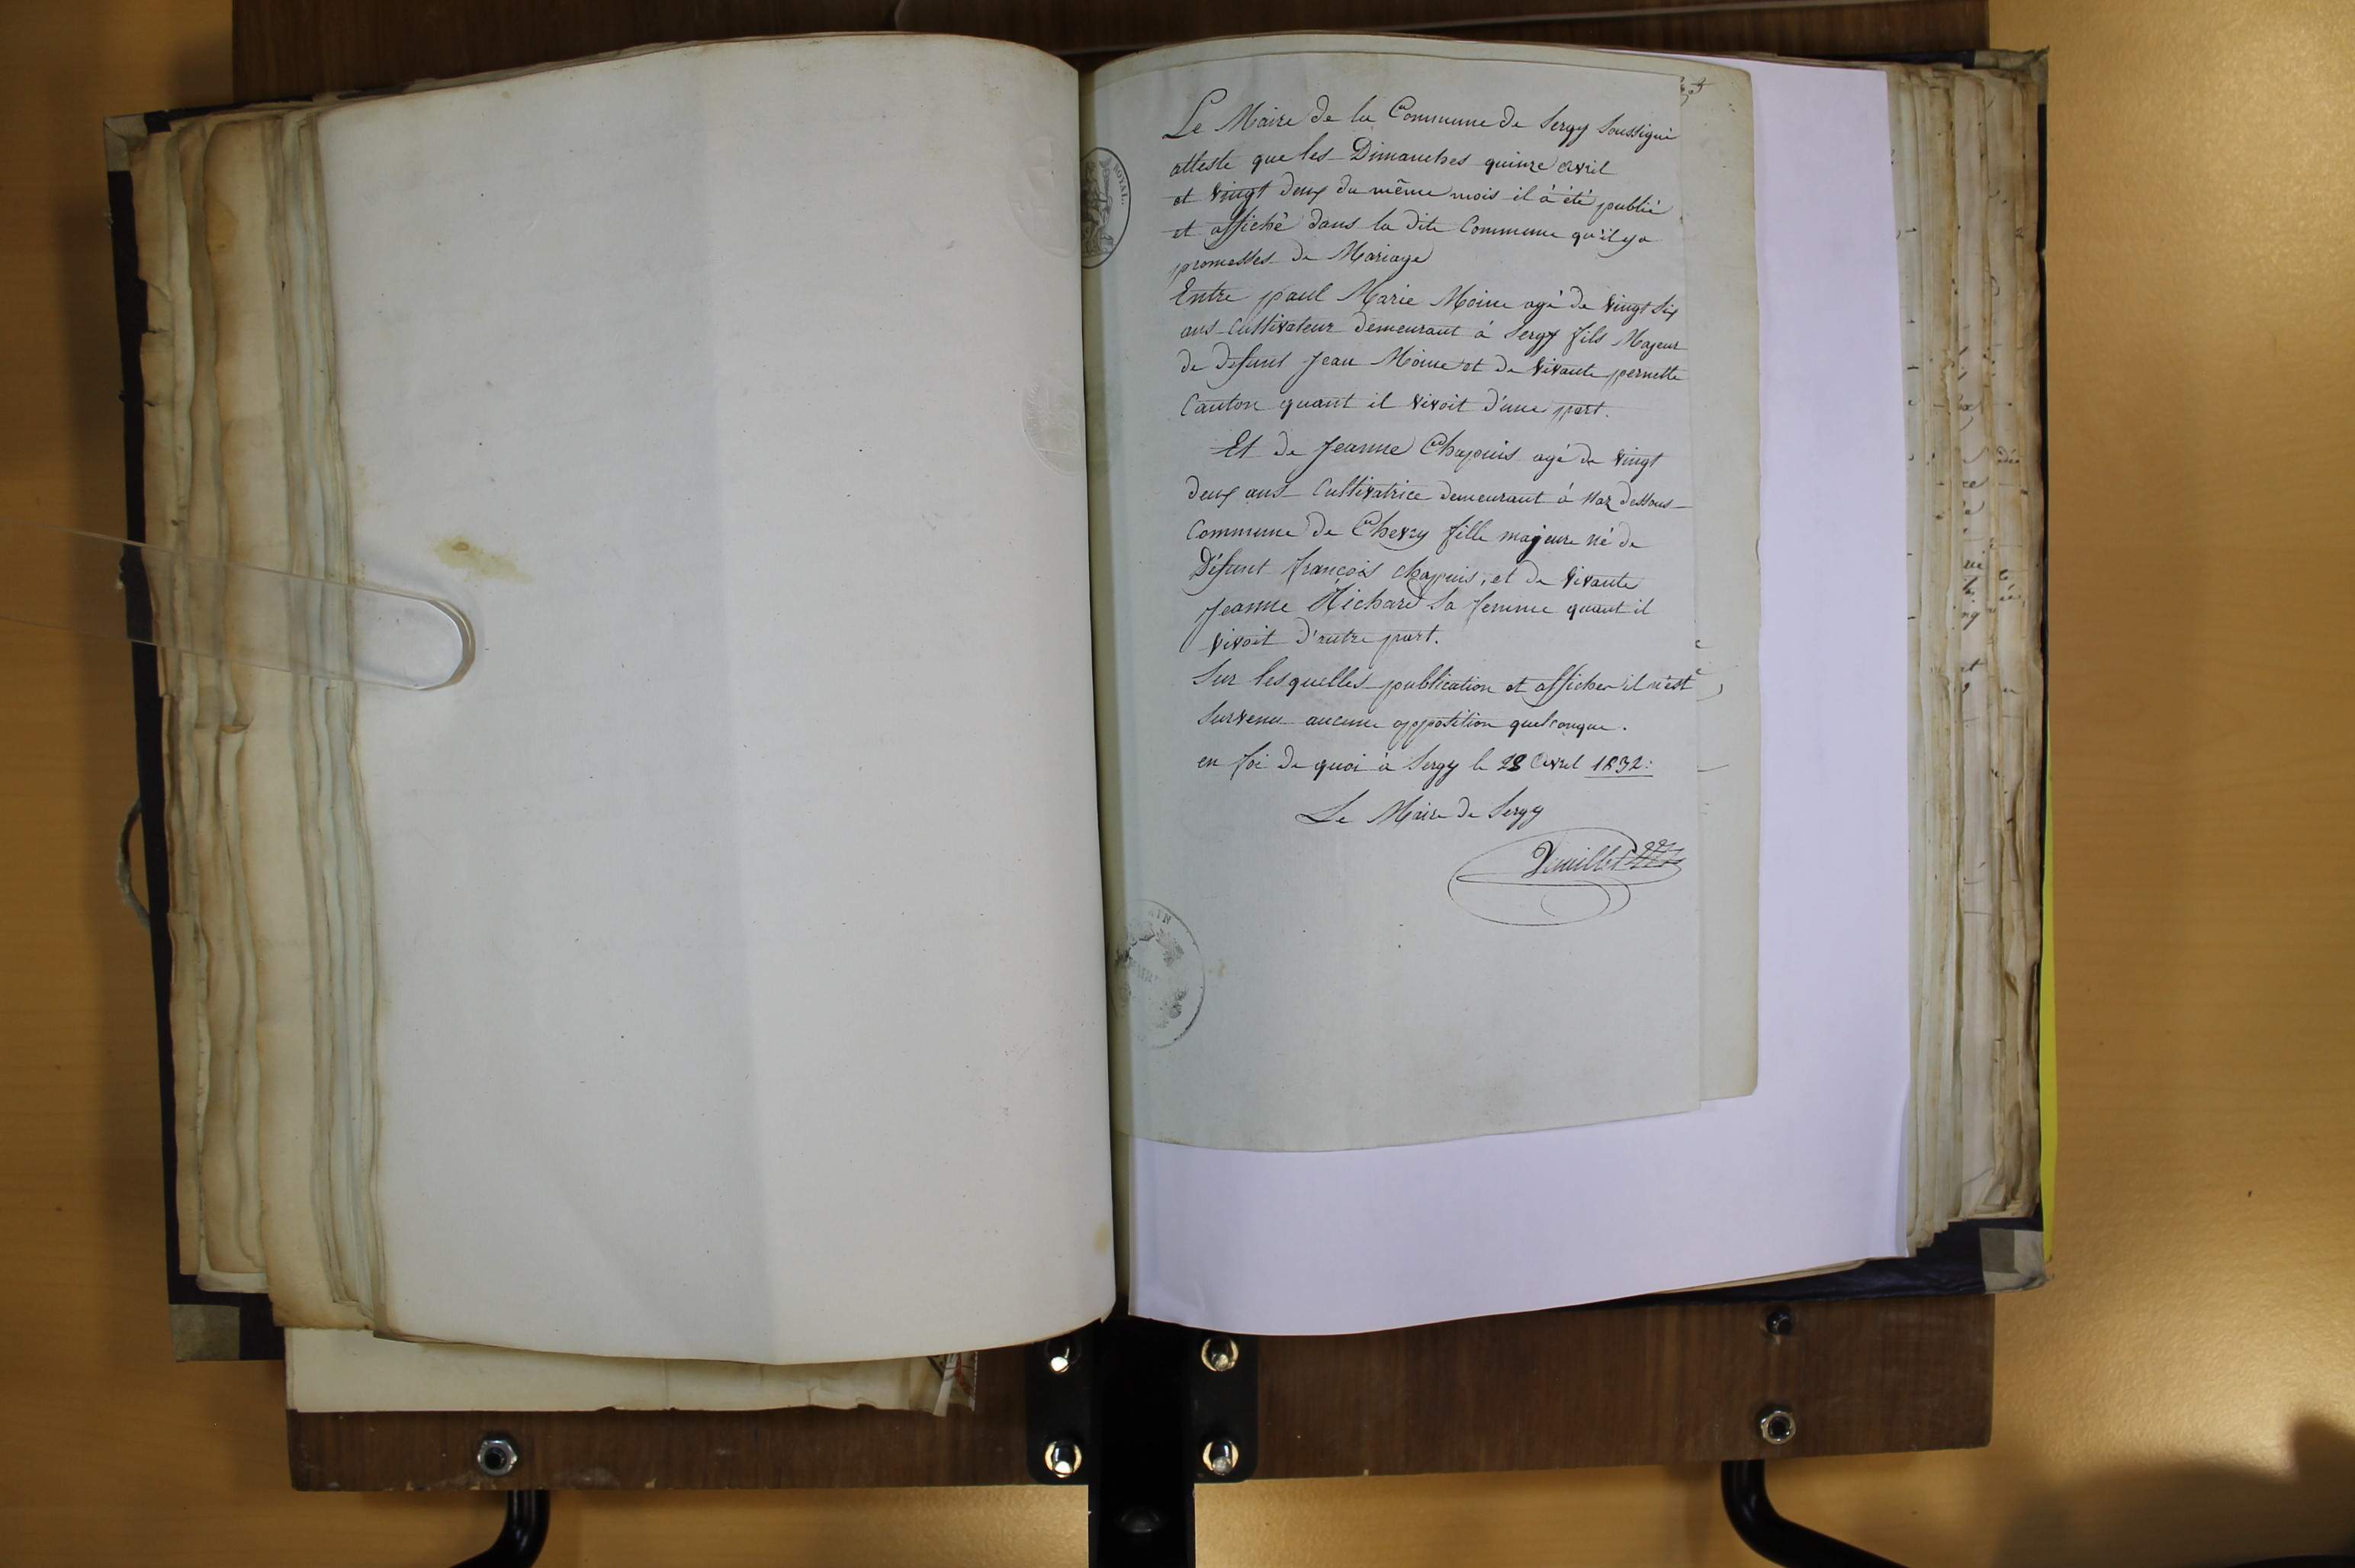 Le Maire de la Commune de Sergy Soussigné
atteste que les Dimanches quinze avril
et vingt deux du même mois il à été publié
et affiché dans la dite Commune qu'il y a
promesses de Mariage
Entre paul Marie Moine agé de vingt six
ans Cultivateur demeurant à Sergy fils Majeur
de defunt Jean Moine et de vivante pernette
Canton quant il vivoit d'une part.
Et de Jeanne Chapuis agé de vingt
deux ans Cultivatrice demeurant à Naz dessous
Commune de Chevry fille majeure né de
Défunt françois chapuis, et de vivante
Jeanne Richard sa femme quant il
vivoit d'autre part.
Sur lesquelles publication et affiches il n'est
survenu aucune opposition quelconque.
en foi de quoi à Sergy le 28 avril 1832:
Le Maire de Sergy
ROYAL.